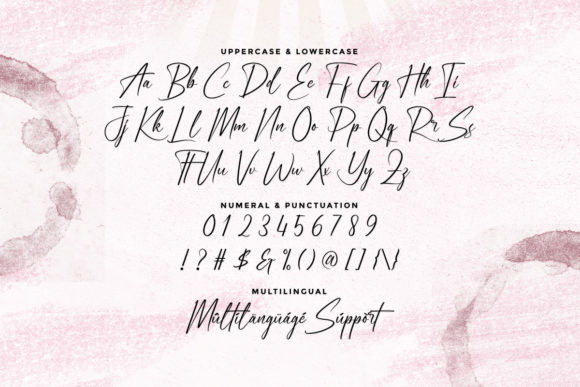 UPPERCASE & LOWERCASE
Aa Bb Cc Dd Ee Ff Gg Hh Ii
Jj Kk Ll Mm Nn Oo Pp Qq Rr Ss
Tt Uu Vv Ww Xx Yy Zz
NUMERAL & PUNCTUATION
0 1 2 3 4 5 6 7 8 9
! ? # $ & % ( ) @ [ ] { \ }
MULTILINGUAL
Múltïlāngūágé Súppört